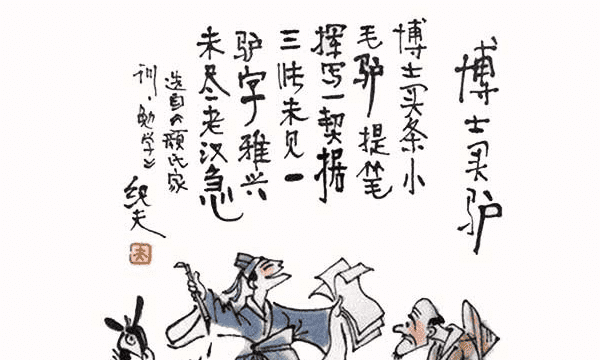 博士买驴
博士买条小
毛驴提笔
挥写一契据
三张未见一
驴字雅兴
未尽老汉急
选自《颜氏家
训·勉学》
纪夫